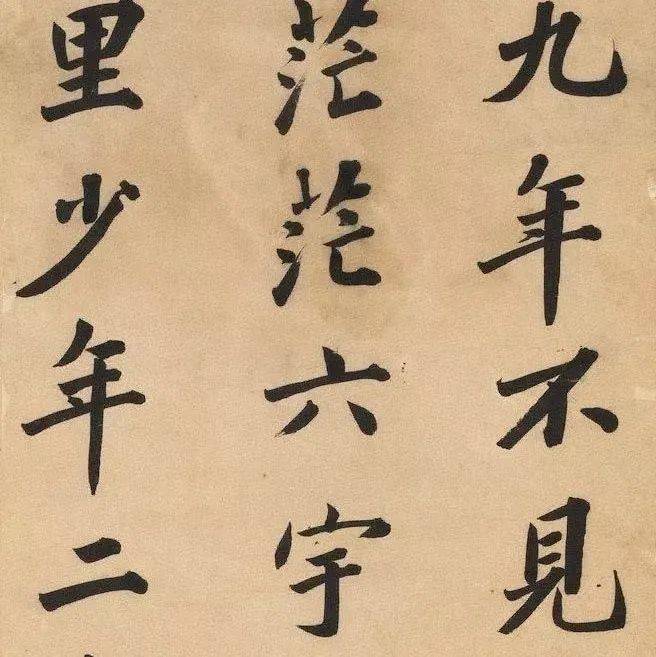 九年不見
茫茫六宇
里少年二